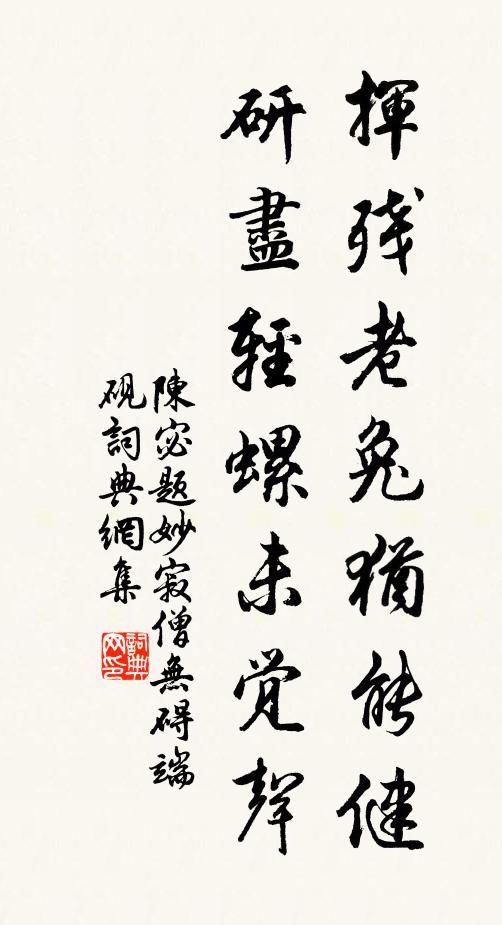 揮残老兔猶能健
研盡輕螺未觉聲
陳宓題妙寂僧無碍端
硯詞典網集
詞典网印